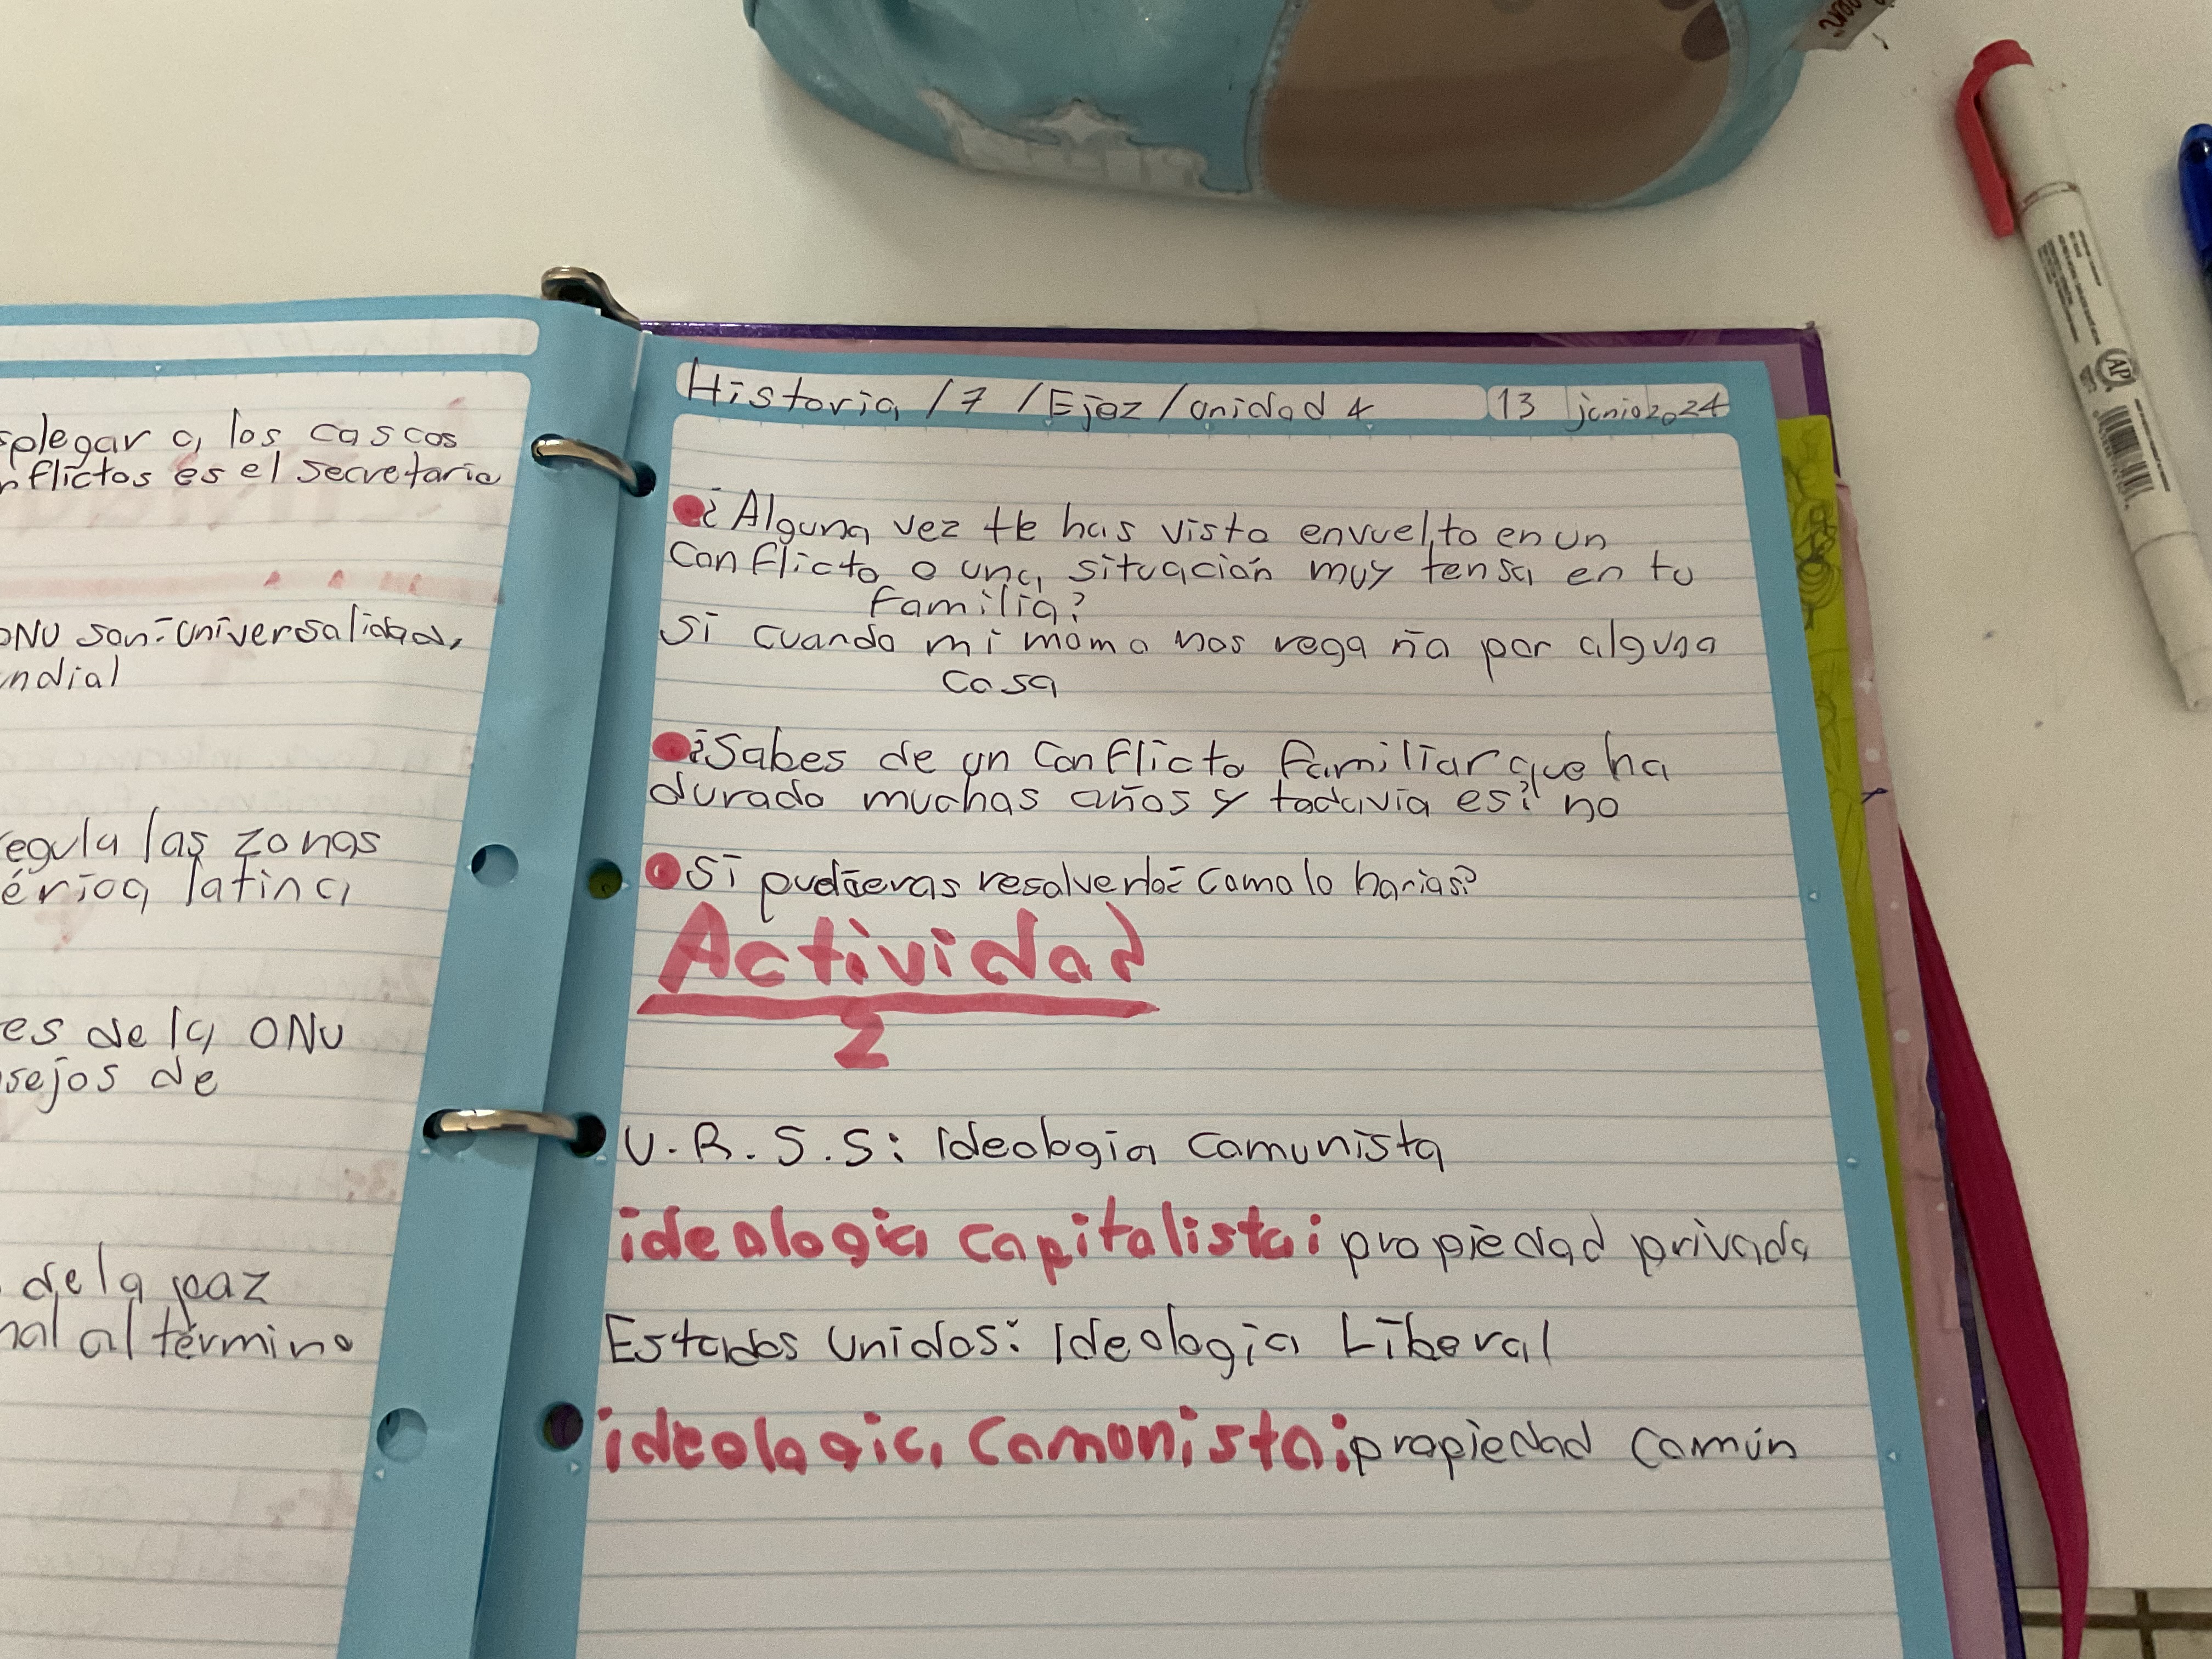 splegar a los cascos
nflictos es el secretario
ONU son: universalidad,
undial
regula las zonas
érica latina
es de la ONU
sejos de
de la paz
nal al término
Historia / 7 / Ejez / unidad 4 13 junio 2024
¿Alguna vez te has visto envuelto en un
conflicto o una situación muy tensa en tu
familia?
Si cuando mi mama nos regaña por alguna
cosa
¿Sabes de un conflicto familiar que ha
durado muchas años y todavia esi? no
Si pudieras resolverlo: como lo harias?
Actividad
2
U.R.S.S: Ideologia comunista
ideologia capitalista: propiedad privada
Estados Unidos: Ideologia Liberal
ideologia comunista: propiedad común
AP